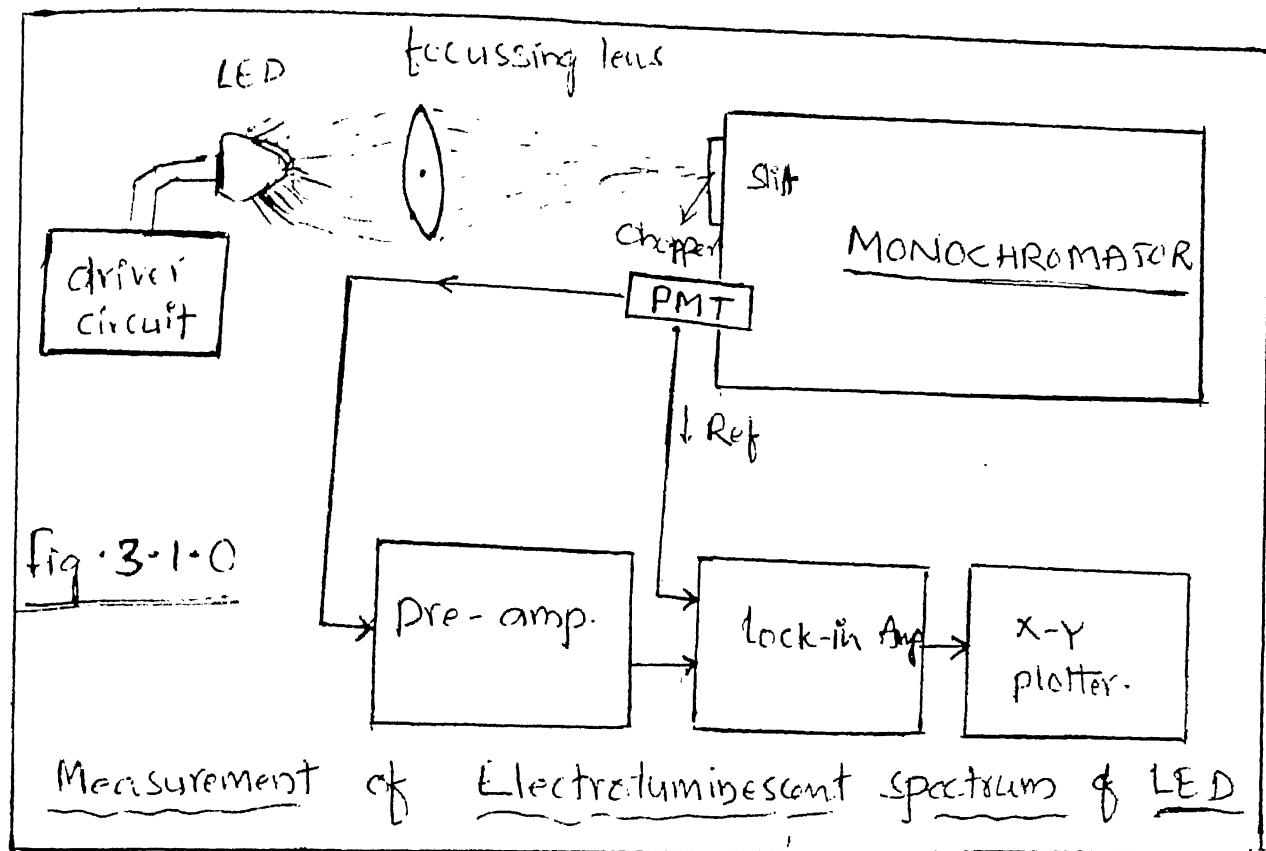 LED
focussing lens
driver
circuit
Slit
Chopper
MONOCHROMATOR
PMT
↓ Ref
fig. 3.1.0
Pre-amp.
lock-in Amp
X-Y
plotter.
Measurement of Electroluminescent spectrum of LED